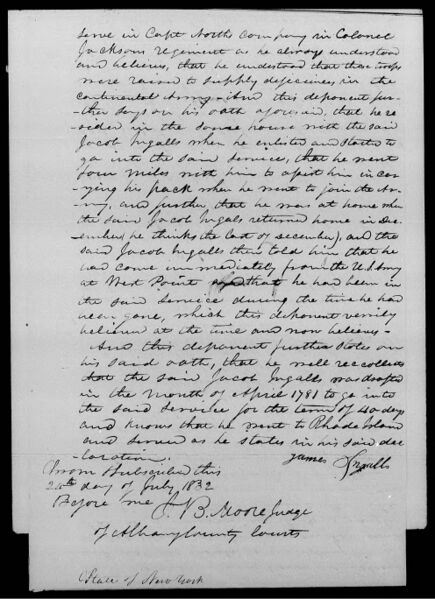 serve in Capt North Company in Colonel
Jacksons regement as he always understood
and believes, that he understood that these troops
were raised to supply deficiencies in the
Continental Army - And this deponent fur-
-ther says on his oath aforesaid, that he re-
-sided in the same house with the said
Jacob Ingalls when he enlisted and started to
go into the said service, that he went
four miles with him to assist him in car-
-rying his pack when he went to join the Ar-
-my, and further that he was at home when
the said Jacob Ingals returned home in De-
-cember (he thinks the last of december), and the
said Jacob Ingalls then told him that he
had come immediately from the U.S. Army
at West Point that he had been in
the said service during the time he had
been gone, which this deponent verily
believed at the time and now believes -
And this deponent further states on
his said oath, that he well reccollects
that the said Jacob Ingalls was drafted
in the Month of April 1781 to go into
the said service for the term of 40 days
and knows that he went to Rhode Island
and served as he states in his said dec
laration. James Ingalls
Sworn & Subscribed this
20th day of July 1832
Before me J. B. Moore Judge
of Albany County Courts
State of New York